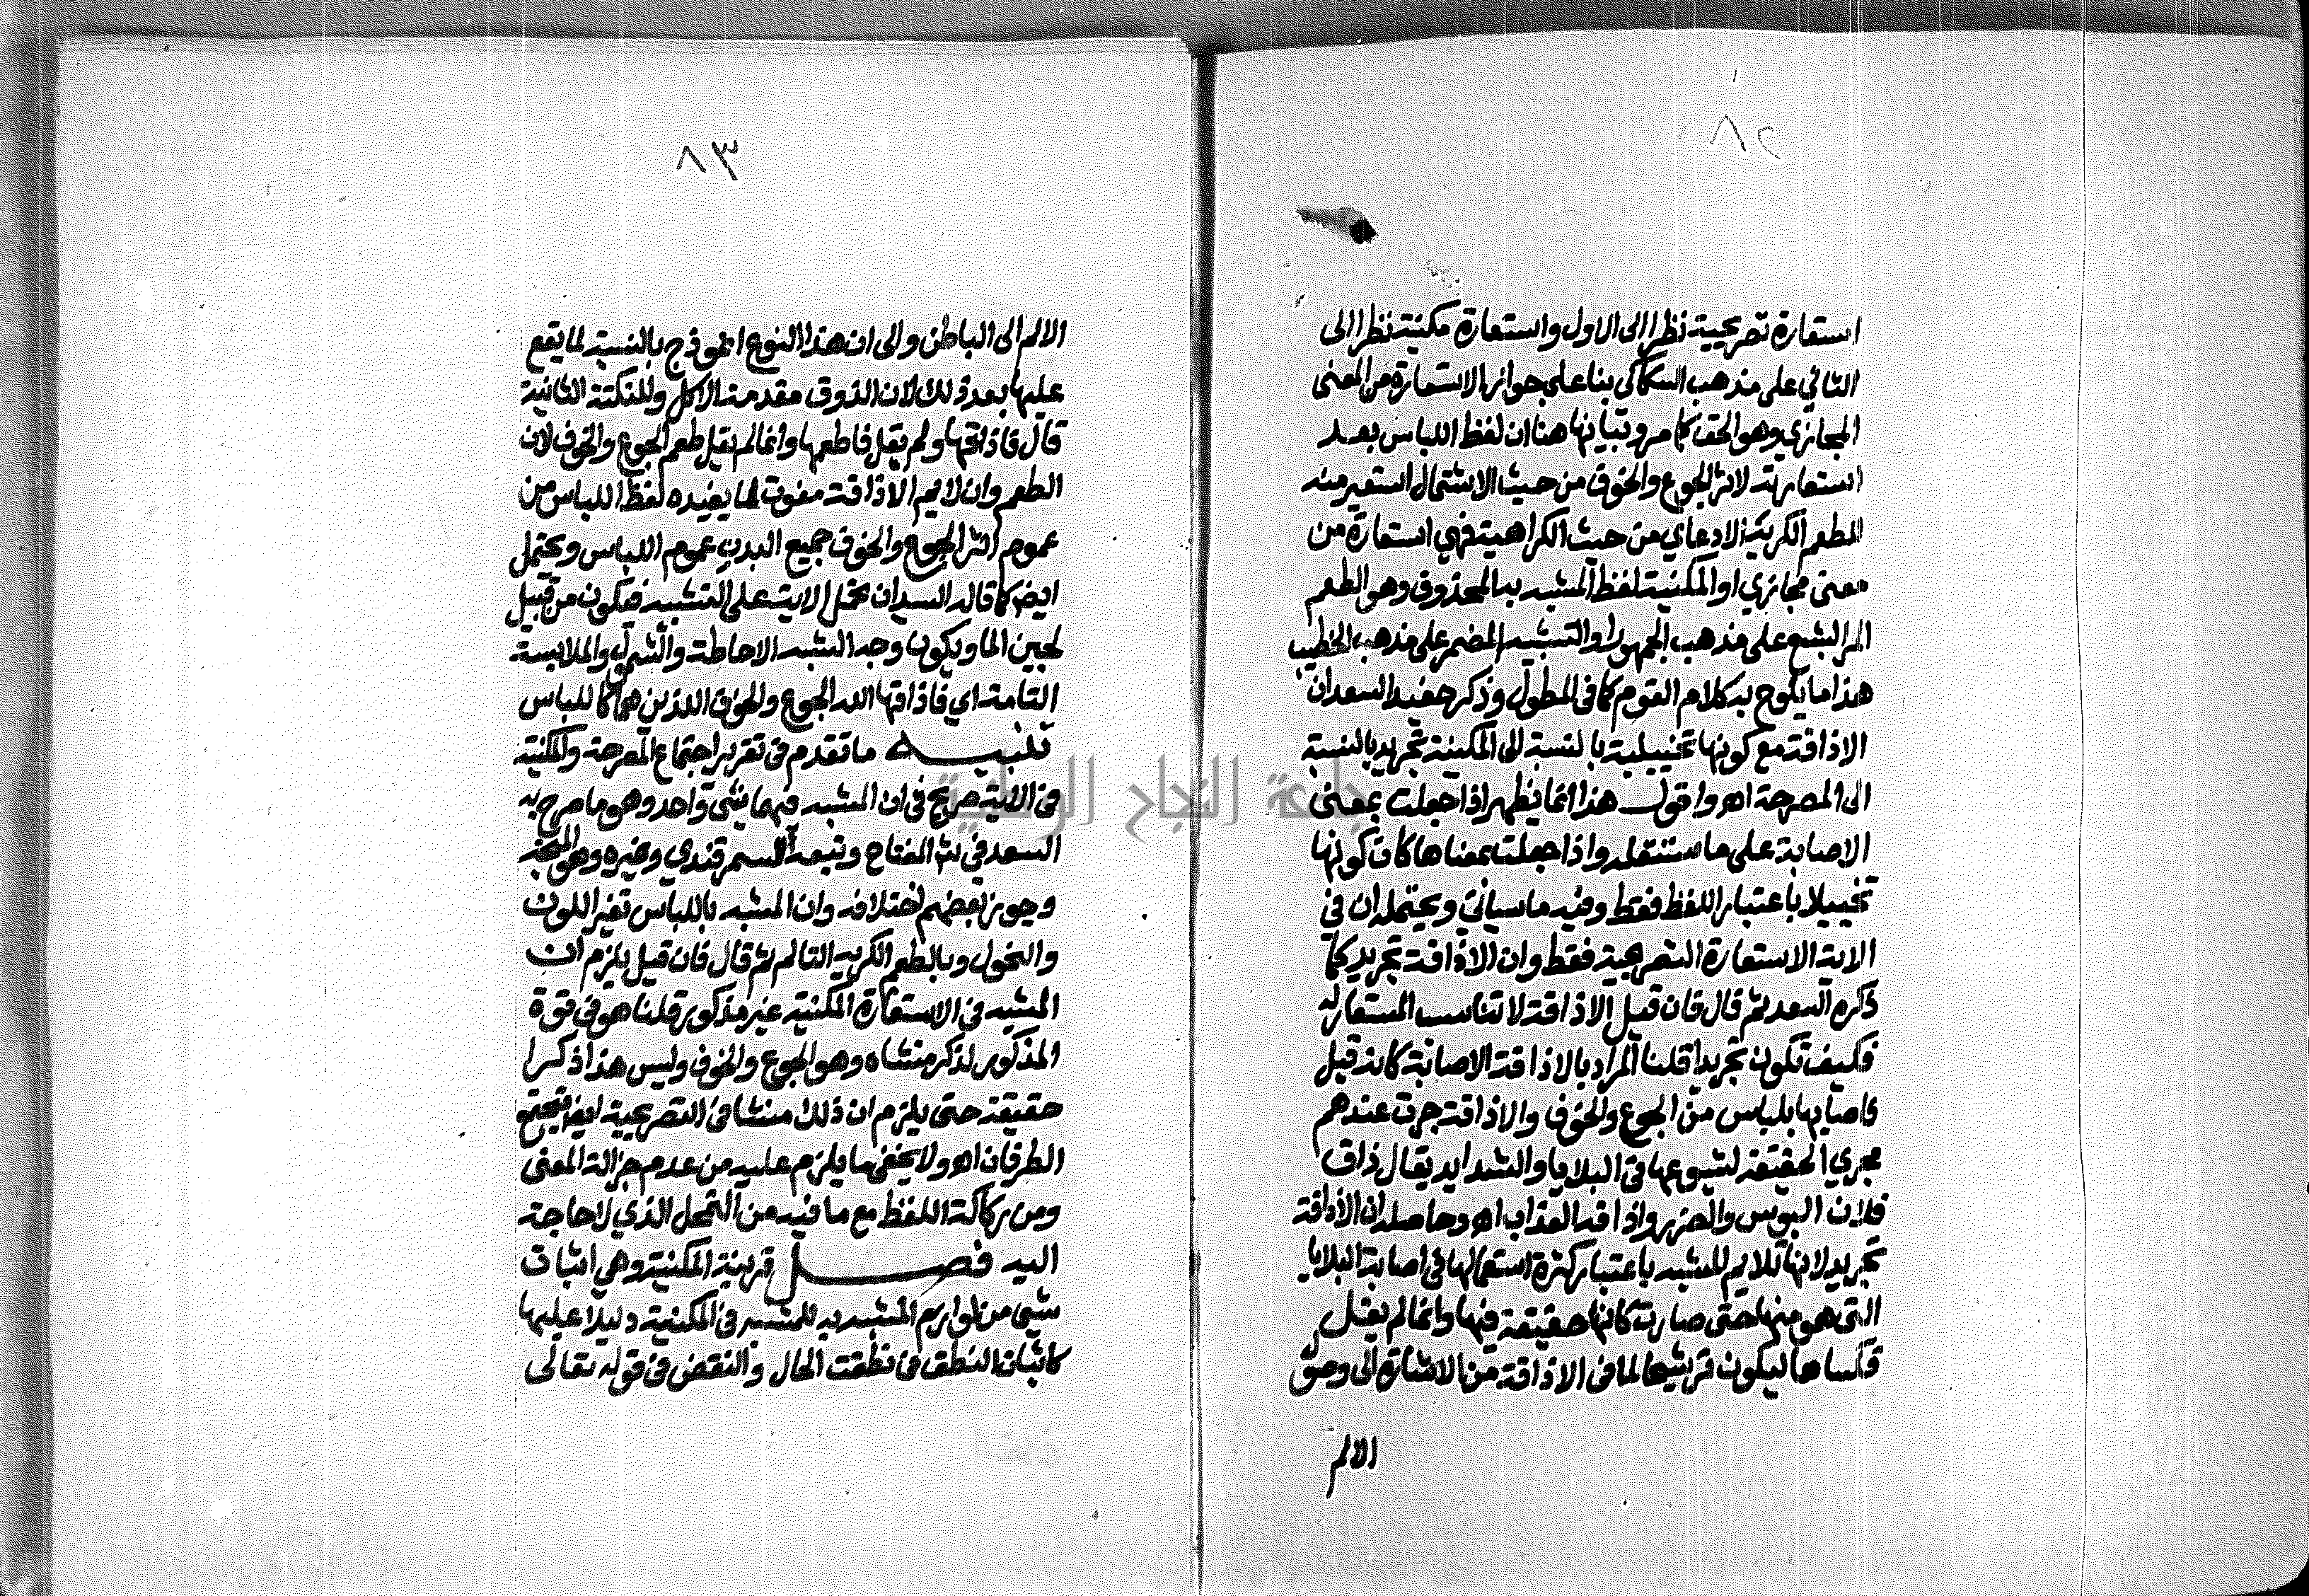 ٨٢
استعارة تصريحية نظرا الى الاول واستعارة مكنية نظرا الى
الثاني على مذهب السكاكي بنا على جواز الاستعارة من المعنى
المجازي وهو الحق كما مر وبيانها هنا ان لفظ اللباس بعد
استعارته لاثر الجوع والخوف من حيث الاشتمال استعير منه
للطعم الكريه الادعاي من حيث الكراهية فهي استعارة من
معنى مجازي او المكنية لفظ المشبه به المحذوف وهو الطعم
المر البشع على مذهب الجمهور او التشبيه المضمر على مذهب الخطيب
هذا ما يلوح به كلام القوم كما في المطول وذكر حفيد السعد ان
الاذاقة مع كونها تخييلية بالنسبة الى المكنية تجريد بالنسبة
الى المصرحة اه واقول هذا انما يظهر اذا جعلت بمعنى
الاصابة على ما سننقله واذا جعلت بمعناها كان كونها
تخييلا باعتبار اللفظ فقط وفيه ما سياتي ويحتمل ان في
الاية الاستعارة التصريحية فقط وان الاذاقة تجريد كما
ذكره السعد ثم قال فان قيل الاذاقة لا تناسب المستعار له
فكيف تكون تجريدا قلنا المراد بالاذاقة الاصابة كانه قيل
فاصابها بلباس من الجوع والخوف والاذاقة جرت عندهم
مجري الحقيقة لشيوعها في البلايا والشدايد يقال ذاق
فلان البوس والضر واذاقه العذاب اه وحاصله ان الاذاقة
تجريد لانها تلايم للمشبه باعتبار كثرة استعمالها في اصابة البلايا
التي هو منها حتى صارت كانها حقيقة فيها وانما لم يقل
فكساها ليكون ترشيحا لما في الاذاقة من الاشارة الى وصول
الالم
٨٣
الالم الى الباطن والى ان هذا النوع انموذج بالنسبة لما يقع
عليها بعد ذلك لان الذوق مقدمة الاكل وللنكتة الثانية
قال فاذاقها ولم يقل فاطعمها وانما لم يقل طعم الجوع والخوف لان
الطعم وان لايم الاذاقة مفوت لما يفيده لفظ اللباس من
عموم اثر الجوع والخوف جميع البدن عموم اللباس ويحتمل
ايضا كما قاله السيد ان تحمل الاية على التشبيه فيكون من قبيل
لجين الما ويكون وجه الشبه الاحاطة والشمول والملابسة
التامة اي فاذاقها الله الجوع والخوف اللذين هما كاللباس
تنبيه ما تقدم في تقرير اجتماع المصرحة والمكنية
في الاية صريح في ان المشبه فيهما شي واحد وهو ما صرح به
السعد في شرح المفتاح وتبعه السمرقندي وغيره وهو المتجه
وجوز بعضهم اختلافه وان المشبه باللباس تغير اللون
والنحول وبالطعم الكريه التالم ثم قال فان قيل يلزم ان
المشبه في الاستعارة المكنية غير مذكور قلنا هو في قوة
المذكور لذكر منشاه وهو الجوع والخوف وليس هذا ذكرا
حقيقة حتى يلزم ان ذلك منشا في التصريحية ايضا فيجتمع
الطرفان اه ولا يخفى ما يلزم عليه من عدم جزالة المعنى
ومن ركاكة اللفظ مع ما فيه من التمحل الذي لا حاجة
اليه فصل قرينة المكنية وهي اثبات
شي من لوازم المشبه به للمشبه في المكنية دليلا عليها
كاثبات النطق في نطقت الحال والنقض في قوله تعالى
جامعة النجاح الوطنية